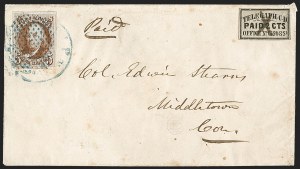 Paid
TELEGRAPH
PAID CTS
OFFICE
Col. Edwin Stearns
Middletown
Con.